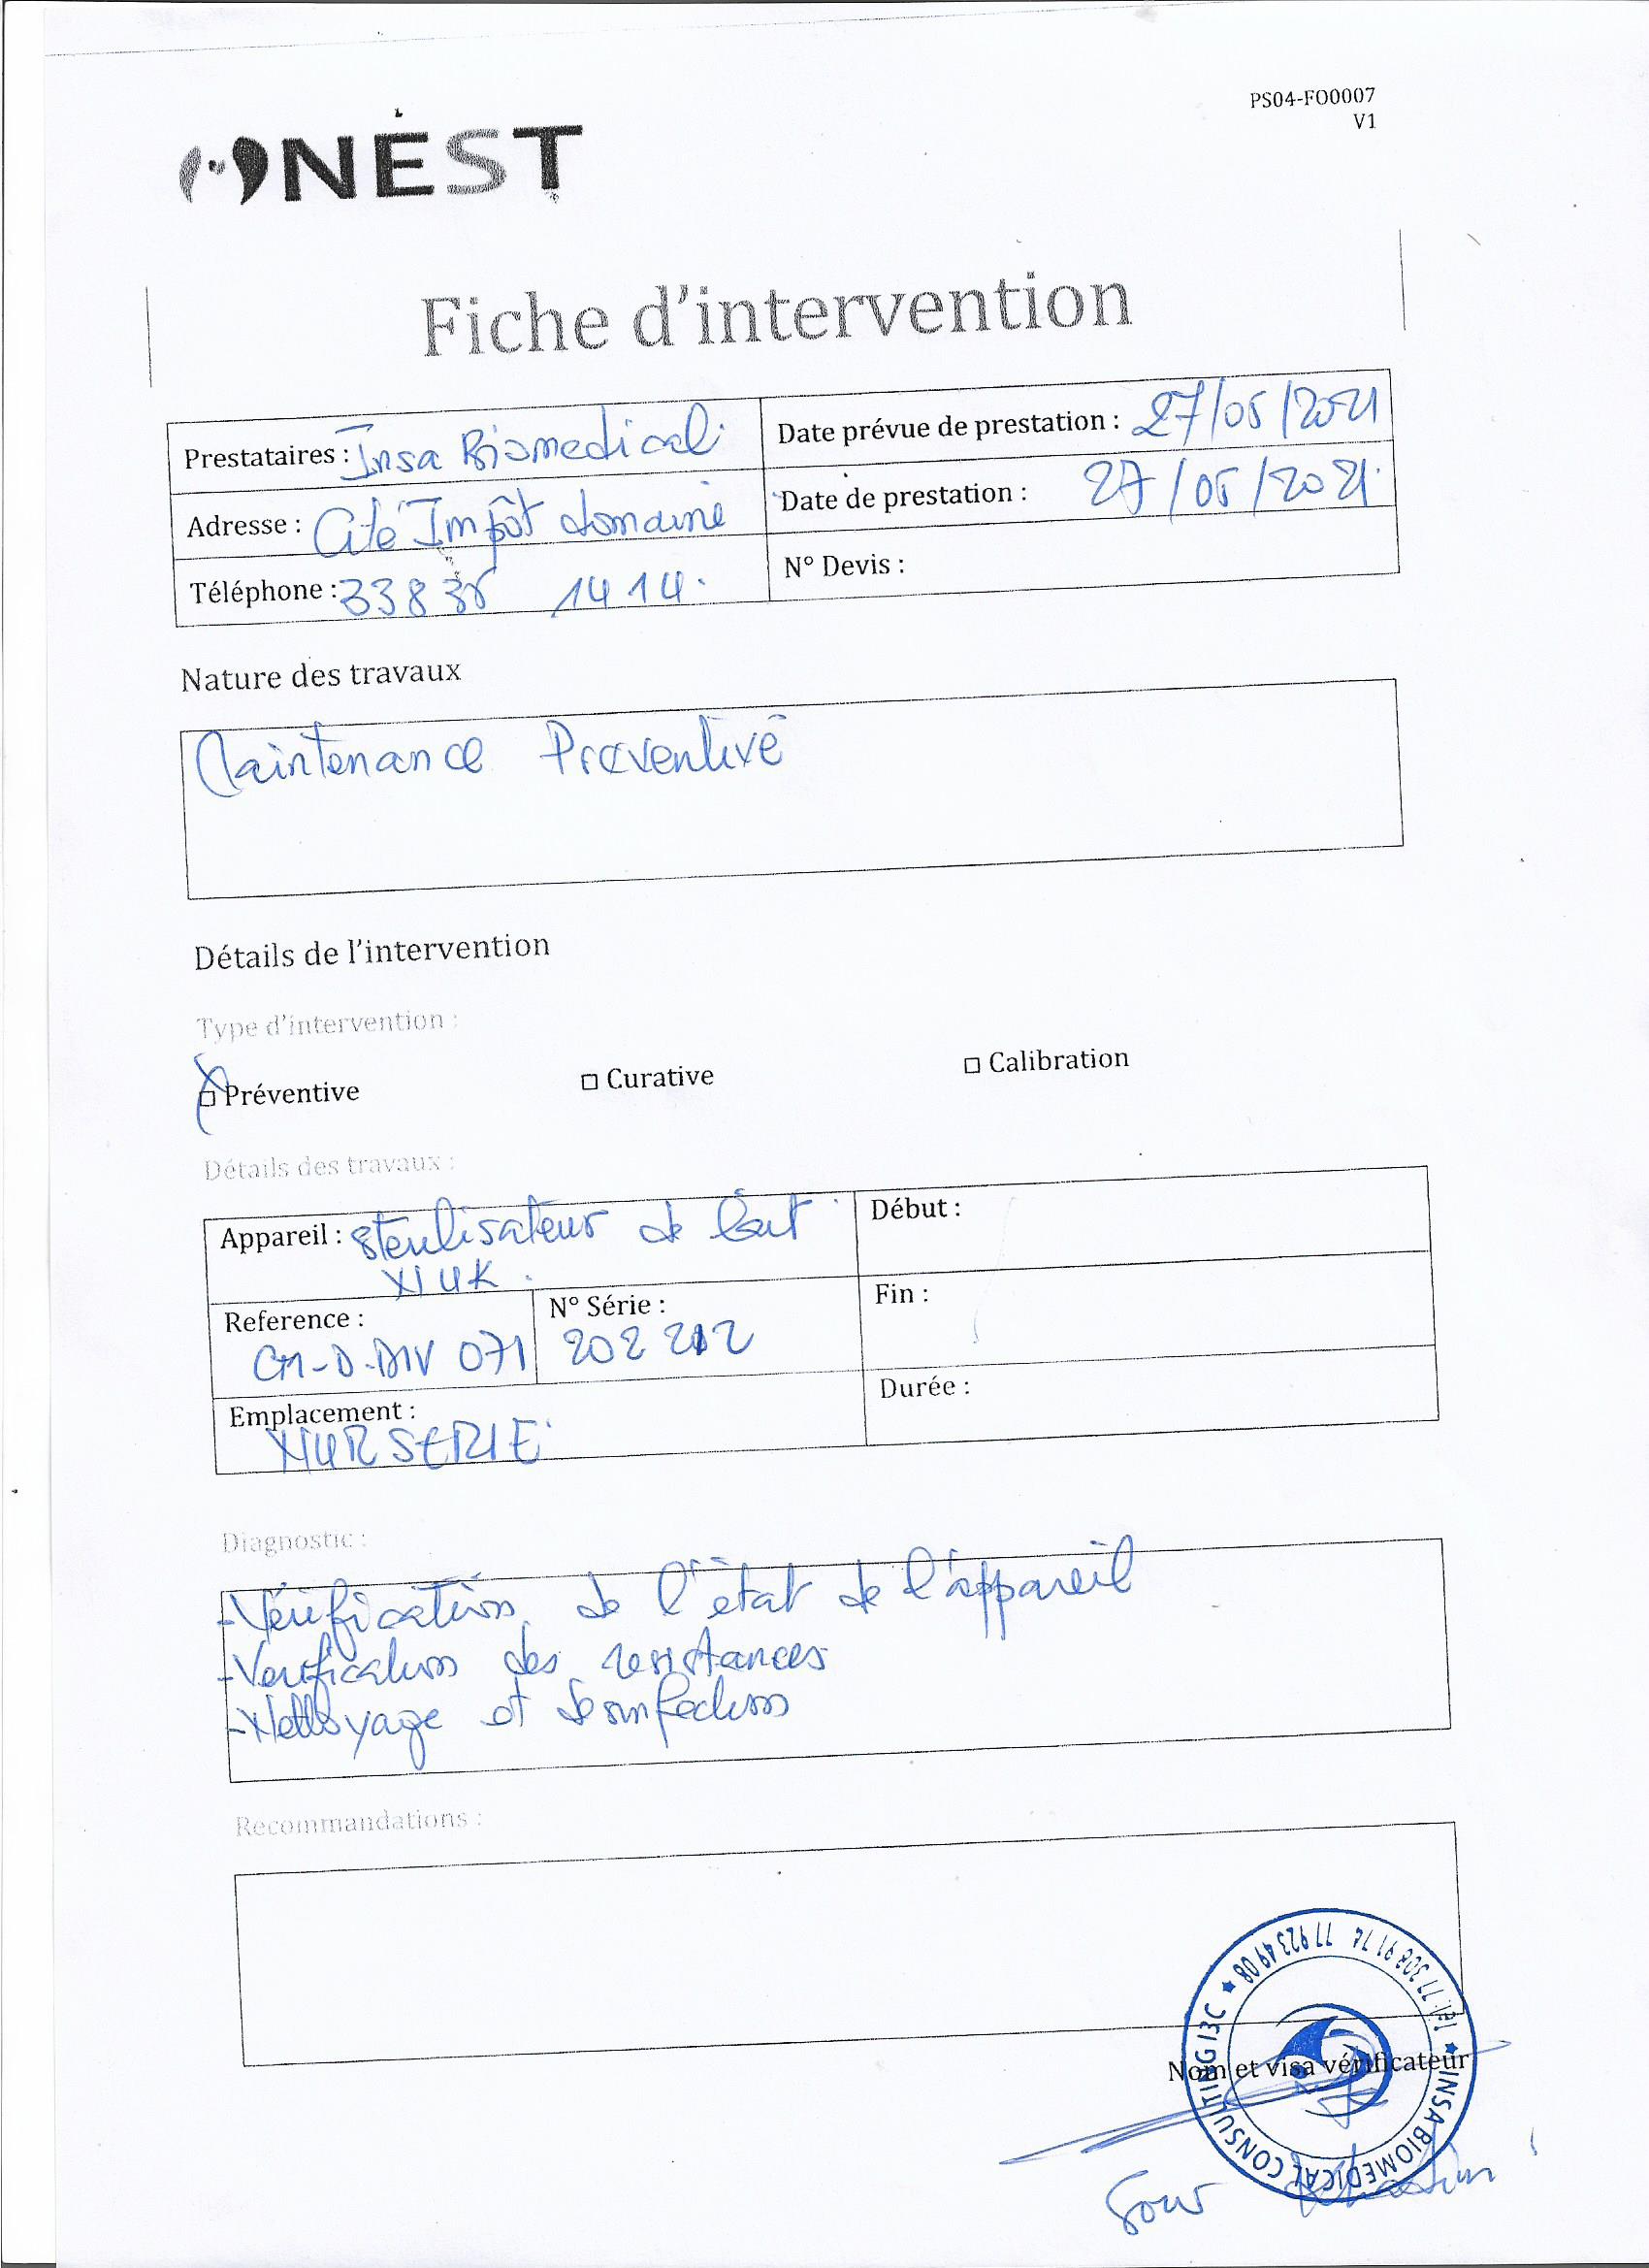 PS04-FO0007
V1
NEST
Fiche d'intervention
Prestataires : Insa Biomedical
Date prévue de prestation : 27/05/2021
Adresse : Cité Impôt domaine
Date de prestation : 27/05/2021
Téléphone : 33 836 14 14
N° Devis :
Nature des travaux
Maintenance Preventive
Détails de l'intervention
Type d'intervention :
Préventive
Curative
Calibration
Détails des travaux :
Appareil : sterilisateur de lait
NUK
Début :
Reference :
CM-D-DIV 071
N° Série :
202 212
Fin :
Emplacement :
NURSERIE
Durée :
Diagnostic :
- Vérification de l'état de l'appareil
- Verification des resistances
- Nettoyage et desinfection
Recommandations :
Nom et visa vérificateur
INSA BIOMEDICAL CONSULTING I3C ★ 77 923 49 08
Tél. 77 308 91 74